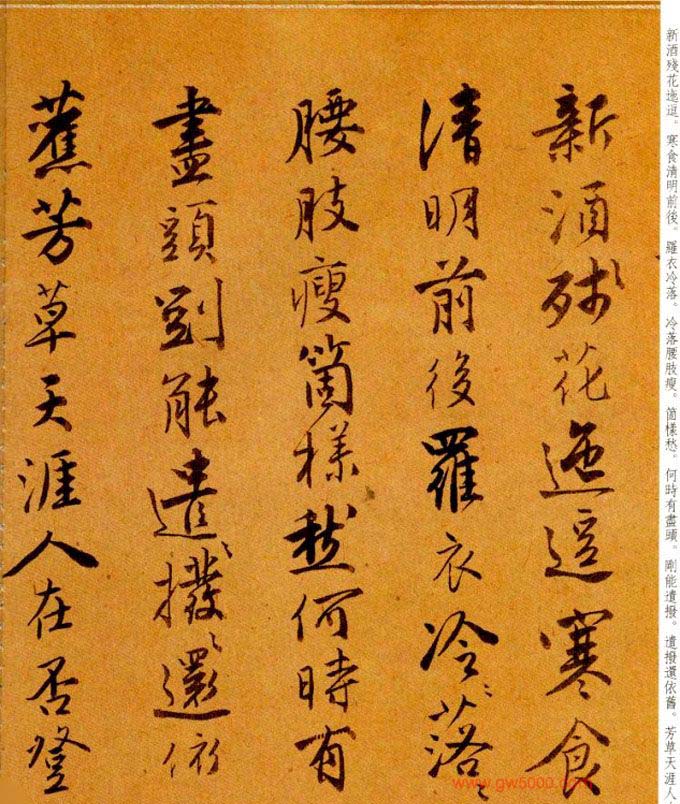 新酒殘花迤逗。寒食清明前後。羅衣冷落。冷落腰肢瘦。箇樣愁。何時有盡頭。剛能遣撥。遣撥還依舊。芳草天涯人
新酒殘花迤逗寒食
清明前後羅衣冷〻落〻
腰肢瘦箇樣愁何時有
盡頭剛能遣〻撥〻還依
舊芳草天涯人在否登
www.gw5000.com